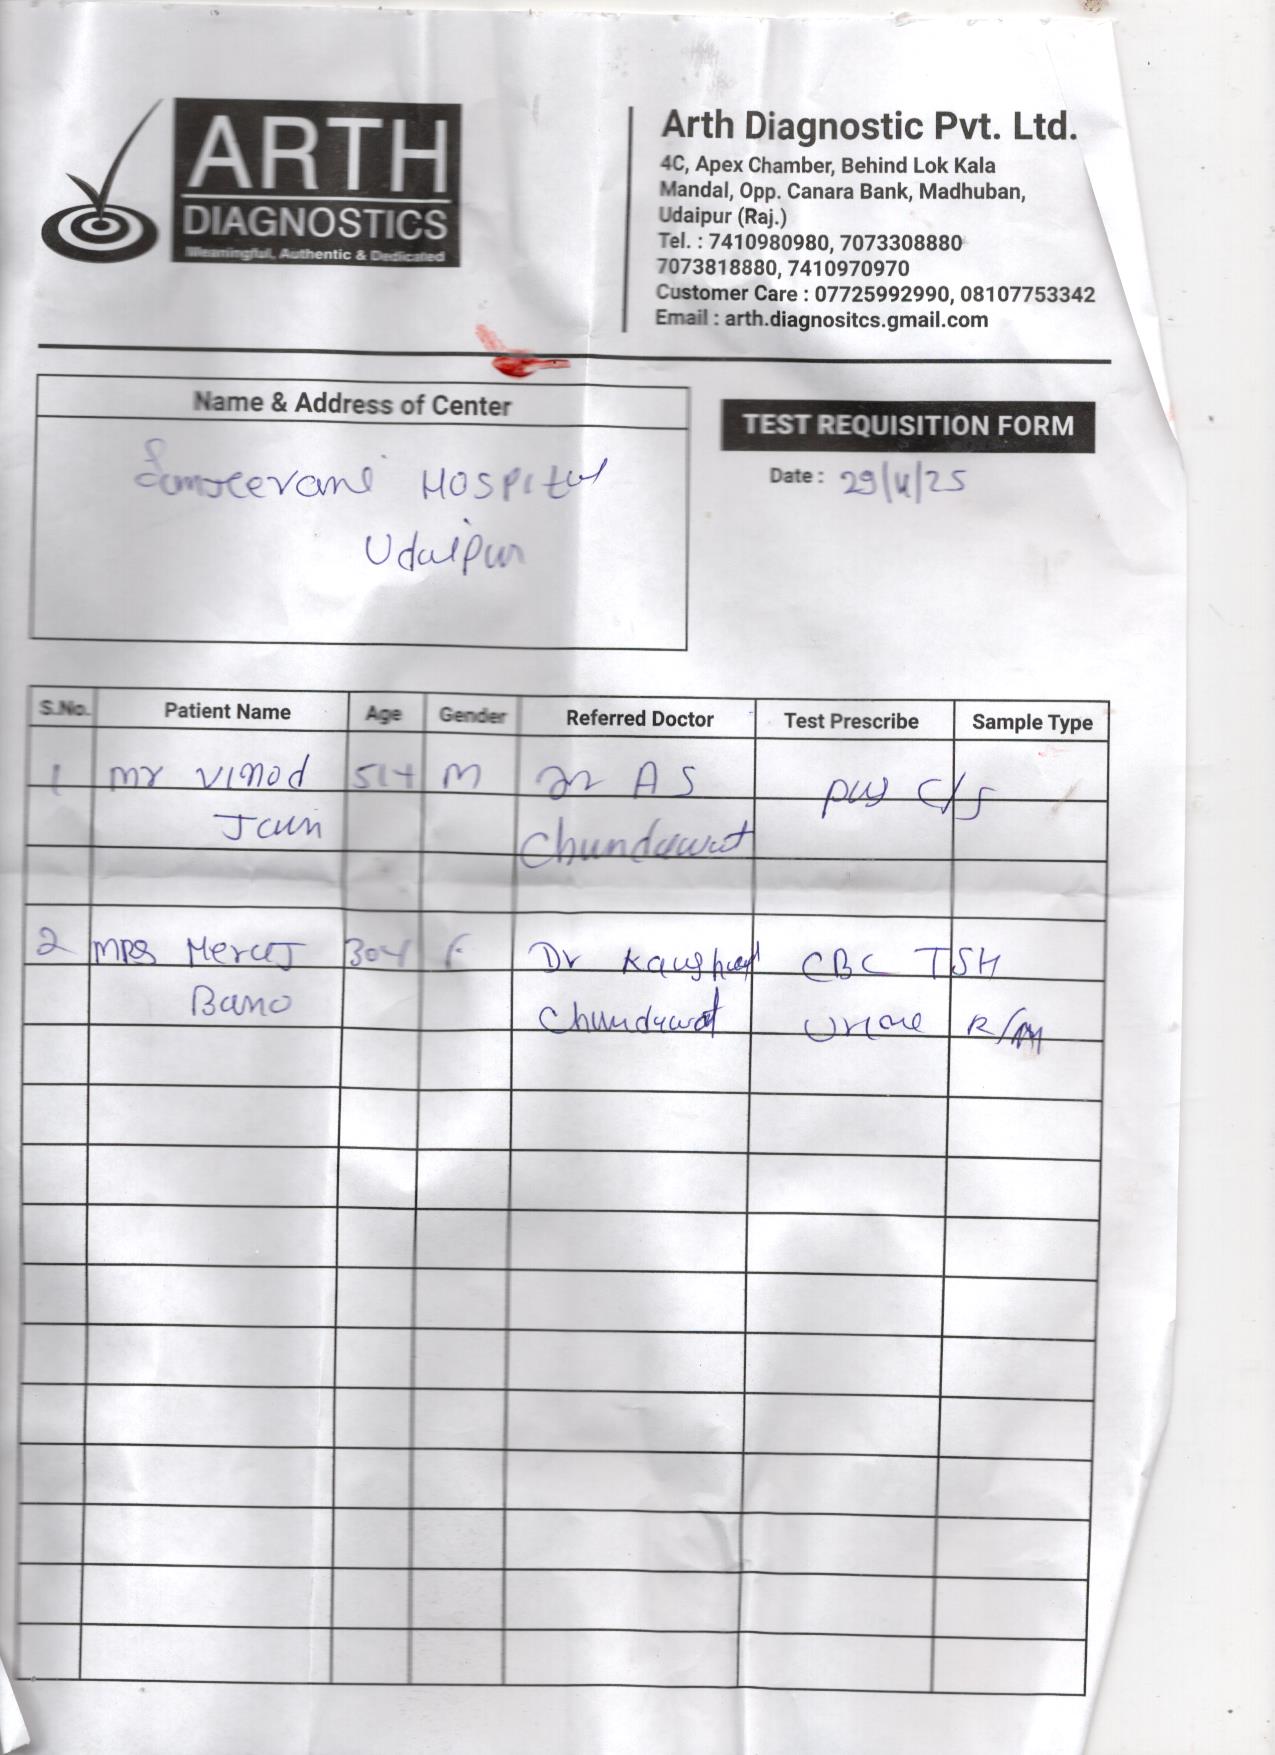 ARTH
DIAGNOSTICS
Meaningful, Authentic & Dedicated
Arth Diagnostic Pvt. Ltd.
4C, Apex Chamber, Behind Lok Kala
Mandal, Opp. Canara Bank, Madhuban,
Udaipur (Raj.)
Tel. : 7410980980, 7073308880
7073818880, 7410970970
Customer Care : 07725992990, 08107753342
Email : arth.diagnositcs.gmail.com
Name & Address of Center
Hospital
Udaipur
TEST REQUISITION FORM
Date : 29/4/25
S.No. Patient Name Age Gender Referred Doctor Test Prescribe Sample Type
1 Mr Vinod 51Y M Dr A S pus C/S
Jain Chundawat
2 MRS 30Y F Dr CBC TSH
Bano Chundawat Urine R/M